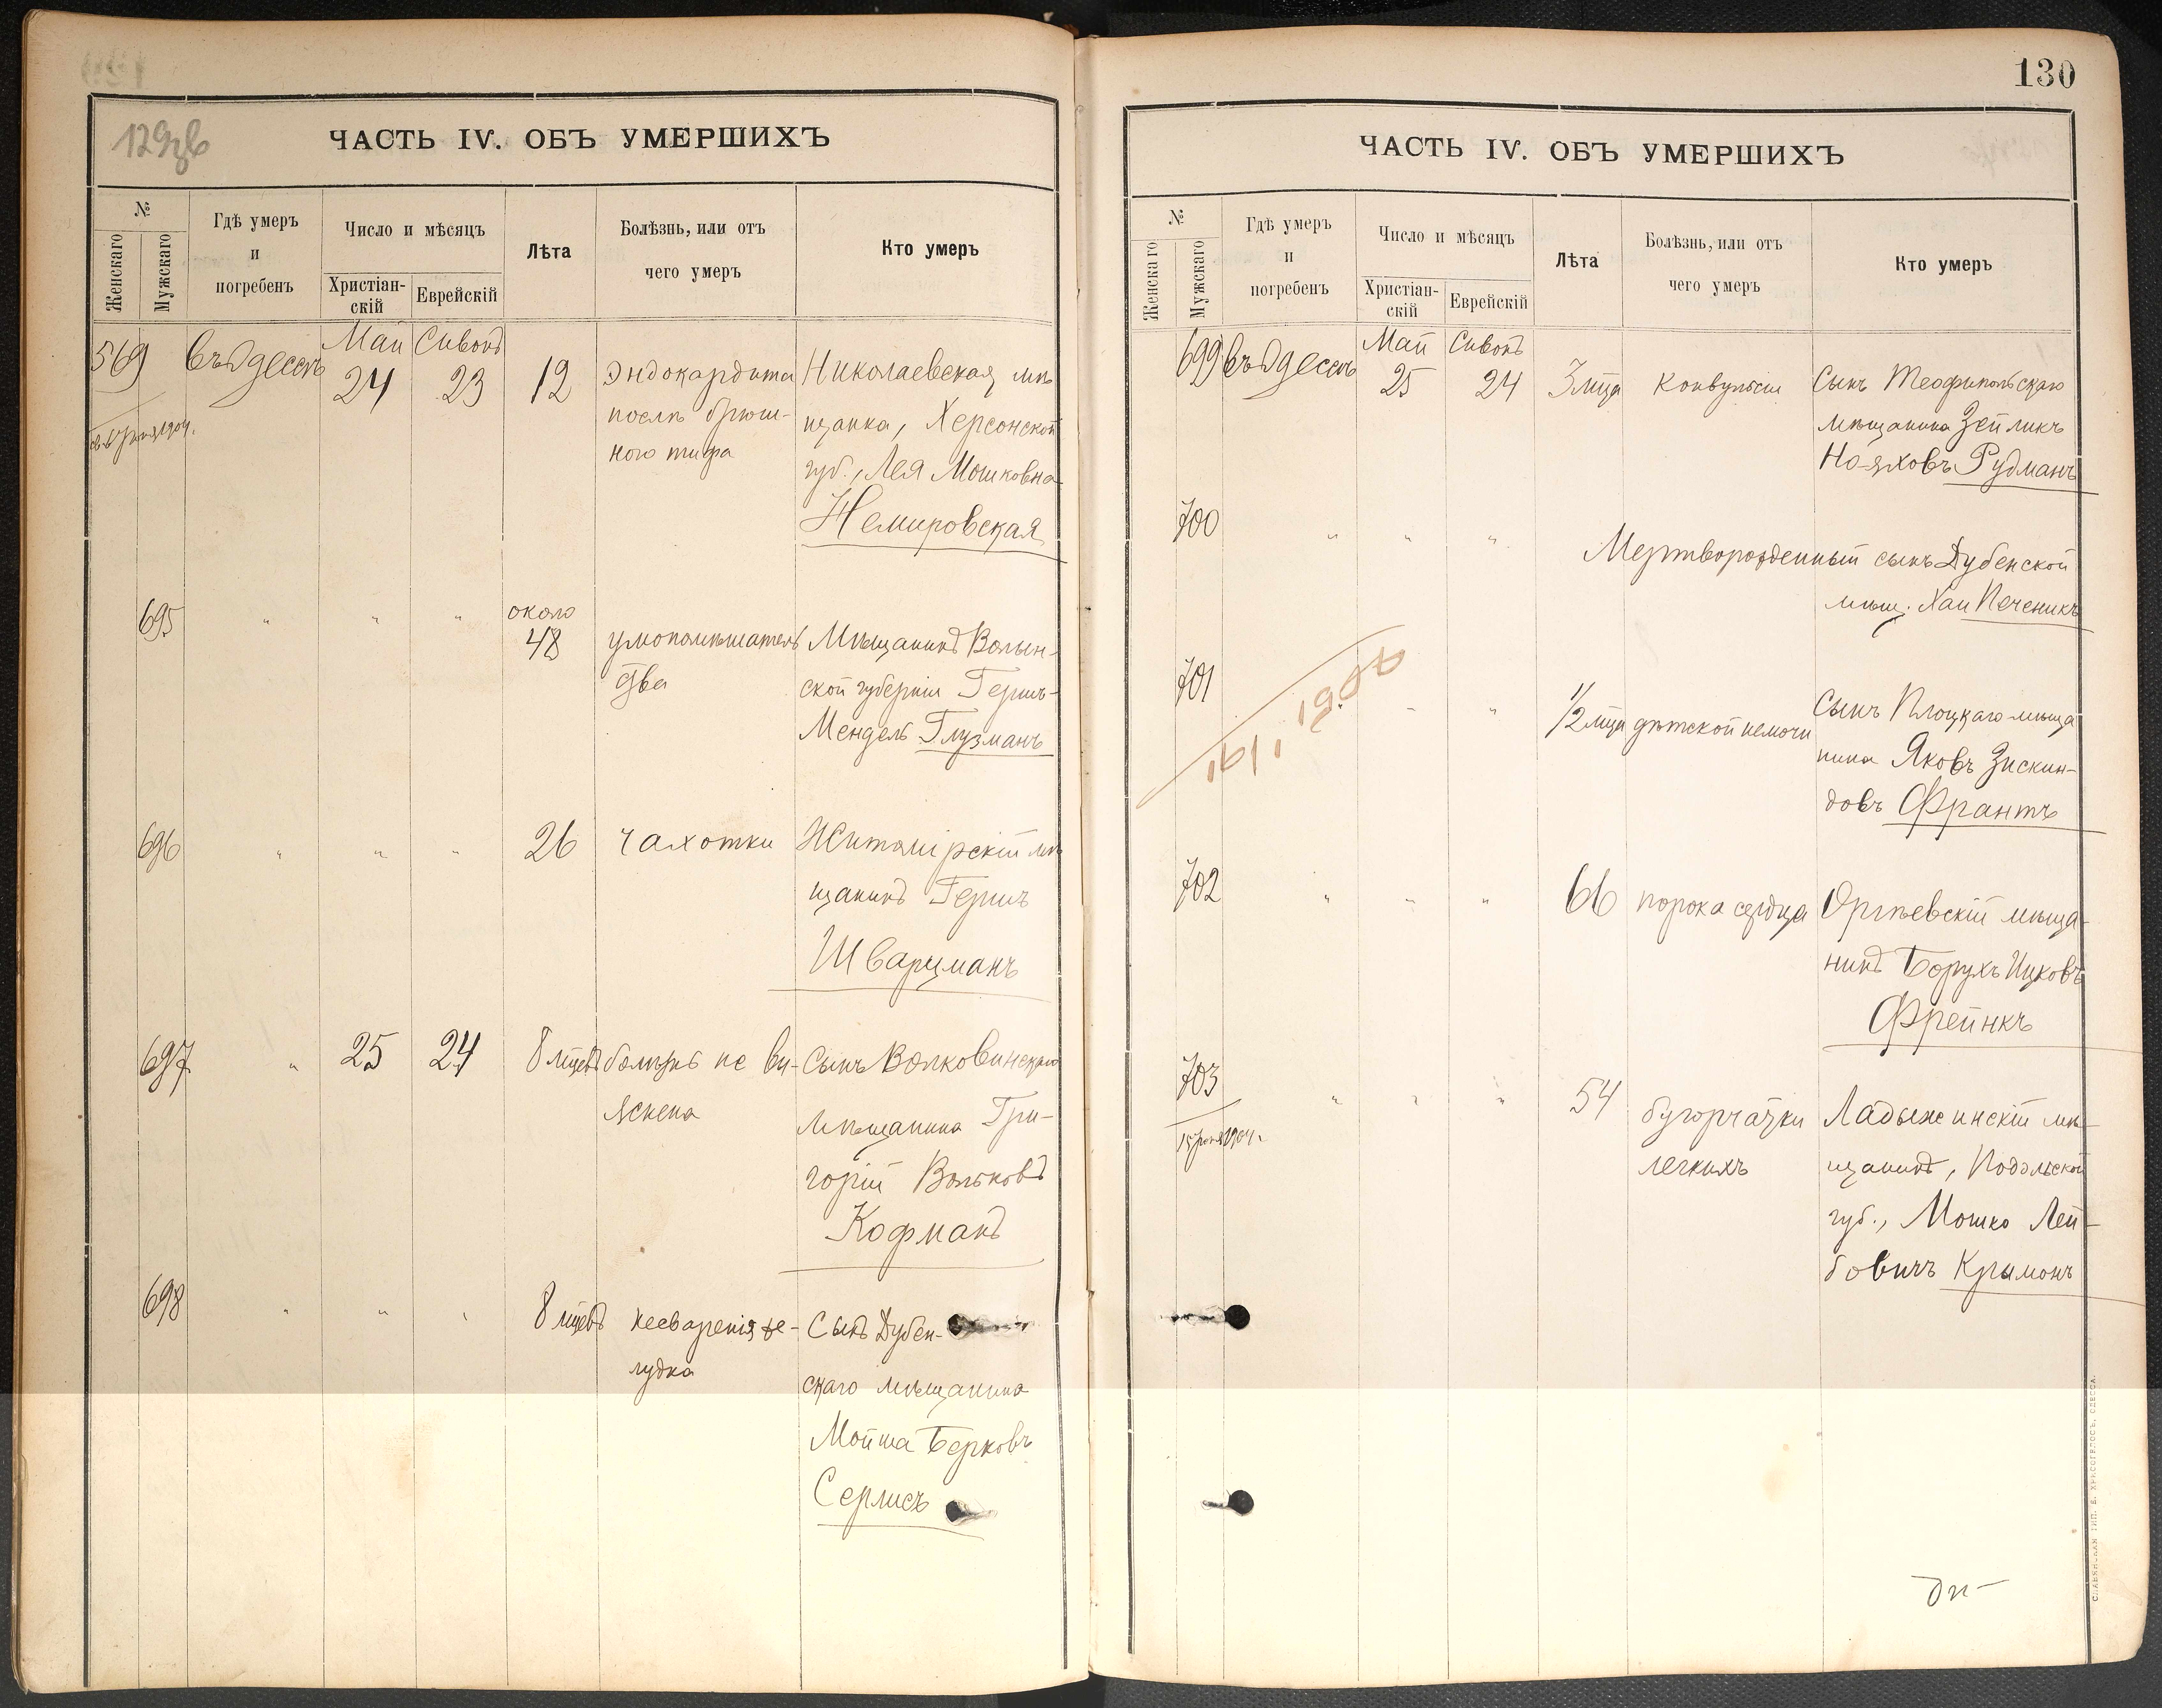 129зв
ЧАСТЬ IV. ОБЪ УМЕРШИХЪ
№
Женскаго
Мужскаго
Гдѣ умеръ
и
погребенъ
Число и мѣсяцъ
Христіан-
скій
Еврейскій
Лѣта
Болѣзнь, или отъ
чего умеръ
Кто умеръ
569 въ Одессѣ Май 24 Сивонъ 23 12 Эндокардита Николаевская мѣ-
послѣ брюш- щанка, Херсонской
ного тифа губ., Лея Мошковна
Немировская
695 " " " около
48 умопомѣшательс Мѣщанинъ Волын-
тва ской губерніи Гершъ-
Мендель Глузманъ
696 " " " 26 чахотки Житомірскій мѣ
щанинъ Гершъ
Шварцманъ
697 " 25 24 8 мцевъ болѣзнь не вы- Сынъ Волковинскаго
яснена мѣщанина Гри-
горій Вольковъ
Кофманъ
698 " " " 8 мцевъ несваренія же- Сынъ Дубен-
лудка скаго мѣщанина
Мойша Берковъ
Серлисъ
130
ЧАСТЬ IV. ОБЪ УМЕРШИХЪ
№
Женскаго
Мужскаго
Гдѣ умеръ
и
погребенъ
Число и мѣсяцъ
Христіан-
скій
Еврейскій
Лѣта
Болѣзнь, или отъ
чего умеръ
Кто умеръ
699 въ Одессѣ Май 25 Сивонъ 24 3 мца Конвульсіи Сынъ Теофипольскаго
мѣщанина Зейликъ
Но-яховъ Рудманъ
700 " " " Мертворожденный сынъ Дубенской
мѣщ. Хаи Печеникъ
701 " " ½ мца дѣтской немочи Сынъ Плоцкаго мѣща
нина Яковъ Зискин-
довъ Франтъ
702 " " " 66 порока сердца Оргѣевскій мѣща-
нинъ Борухъ Ицковъ
Фрейнкъ
703 " " " 54 бугорчатки Ладыжинскій мѣ-
15 Іюня 1904 г. легкихъ щанинъ, Подольской
губ., Мошко Лей-
бовичъ Крымонъ
СЛАВЯНСКАЯ ТИП. Е. ХРИСОГЕЛОСЪ, ОДЕССА.